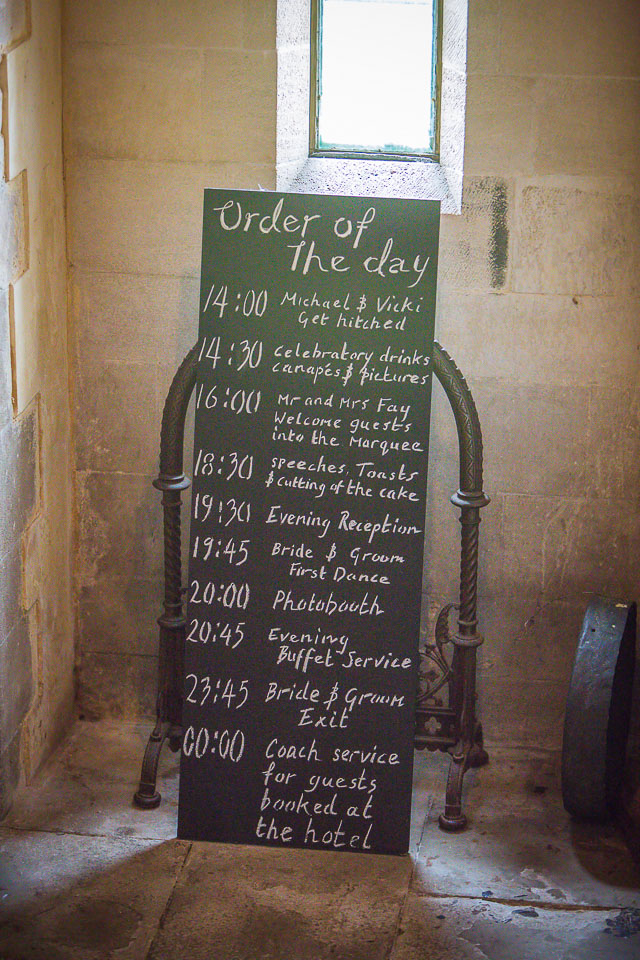 Order of
The day
14:00 Michael & Vicki
Get hitched
14:30 celebratory drinks
canapés & pictures
16:00 Mr and Mrs Fay
Welcome guests
into the Marquee
18:30 speeches, Toasts
& cutting of the cake
19:30 Evening Reception
19:45 Bride & Groom
First Dance
20:00 Photobooth
20:45 Evening
Buffet Service
23:45 Bride & Groom
Exit
00:00 Coach service
for guests
booked at
the hotel